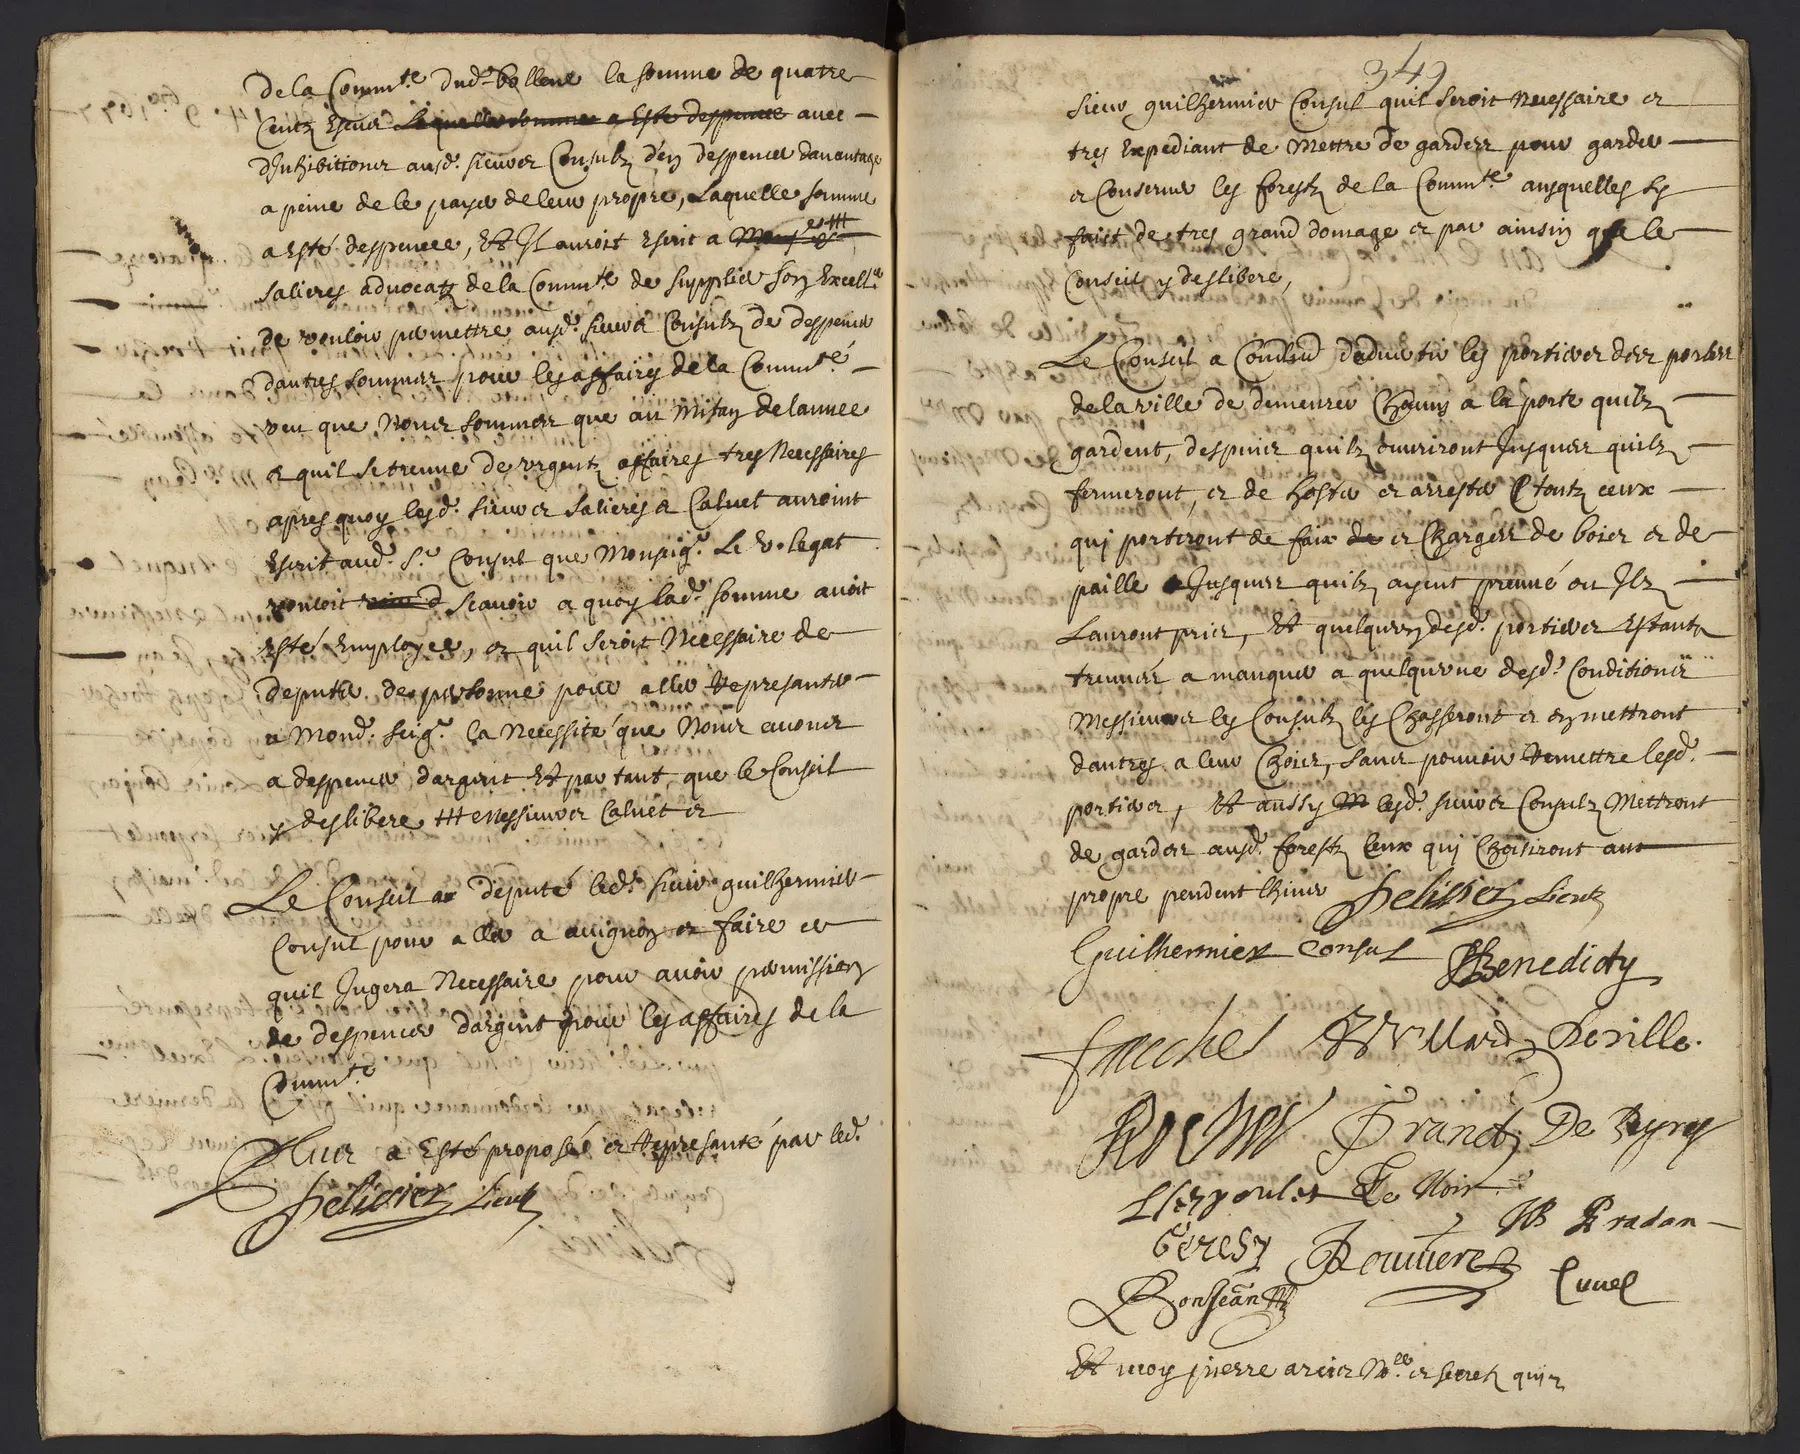 de la Comm.te dud.t bollene la somme de quatre
Centz Escus Laquelle somme a Esté despencee avec
d'Inhibitions ausd. sieurs Consulz d'en despencer davantage
a peine de le payer de leur propre, Laquelle somme
a Esté despencee, Et Il auroit Escrit a
salieres advocatz de la Comm.te de supplier son Excell.ce
de vouloir permettre ausd. sieurs Consulz de despencer
dautres sommes pour les affaires de la Comm.té
veu que Nous sommes que au mitan de lannee
et quil se treuve de urgentz affaires tres Necessaires
apres quoy lesd. sieurs salieres et Calvet auroint
Escrit aud. S.r Consul que Monseig.r Le v. legat
vouloit scavoir a quoy lad. somme avoit
Esté Employee, et quil seroit Necessaire de
deputer de personne pour aller Represanter
a Mond. seig.r la Necessité que Nous avons
a despencer dargent Et par tant que le Conseil
y deslibere Messieurs Calvet et
Le Conseil a deputé led. sieur guilhermier
Consul pour aller a avignon et faire ce
quil Jugera Necessaire pour avoir permission
de despencer dargent pour les affaires de la
Comm.te
Plus a Esté proposé et Represanté par led.
Pelissier Lieut
349
sieur guilhermier Consul quil seroit Necessaire et
tres Expediant de Mettre de gardes pour garder
et Conserver les forestz de la Comm.te ausquelles sy
faict de tres grand domage et par ainsin que le
Conseil y deslibere,
Le Conseil a Conclud dadvertir les portiers des portes
de la ville de demeurer Chacuns a la porte quilz
gardent, despuis quilz ouvriront Jusques quilz
fermeront, et de hoster et arrester toutz ceux
qui portiront de faix de et Charges de bois et de
paille Jusques quilz ayent preuvé ou Ilz
Lauront pris, Et quelques desd. portiers Estantz
treuvés a manquer a quelquune desd. Conditions
Messieurs les Consulz les Chasseront et en mettront
dautres a leur Choix, sans pouvoir Remettre lesd.
portiers, Et aussy lesd. sieurs Consulz Mettront
de gardes ausd. forestz Ceux qui Choisiront
propre pendent lhiver Pelissier Lieut
Guilhermier Consul Benedicty
fauches Deville.
Roches De Reyres
Lespoulet Le Noir
JB Pradon
Geresy Rouviere
Bonjean Cuvel
Et moy pierre No.re et secret